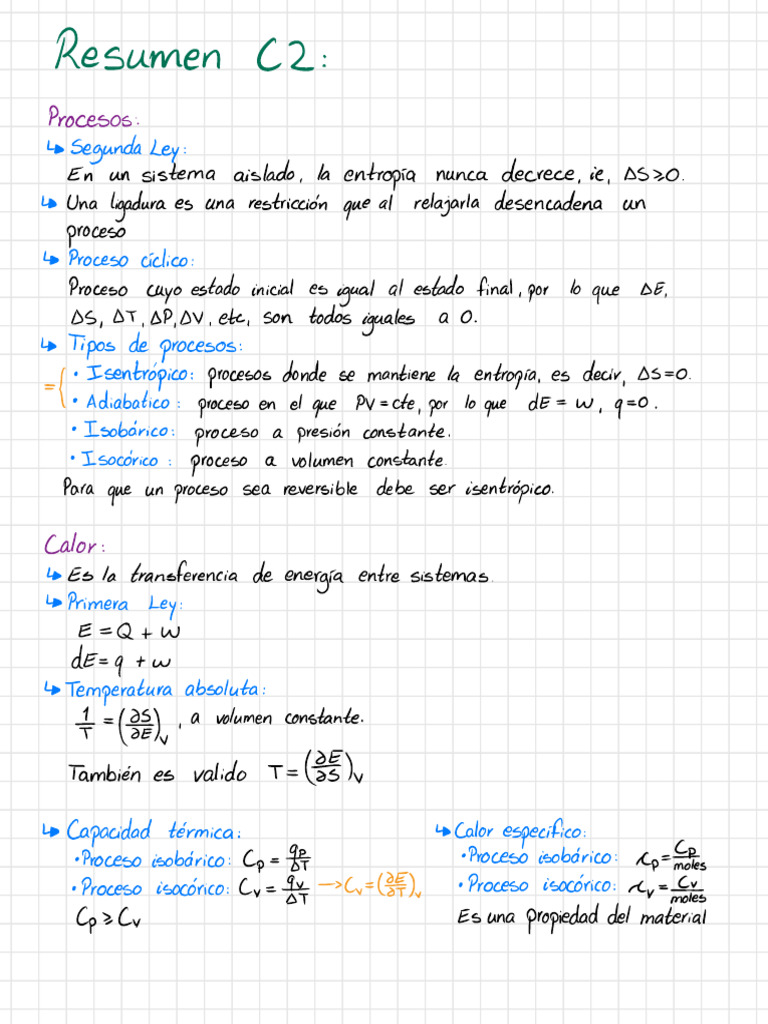 Resumen C2:
Procesos:
↳ Segunda Ley:
En un sistema aislado, la entropía nunca decrece, ie, ΔS≥0.
↳ Una ligadura es una restricción que al relajarla desencadena un
proceso
↳ Proceso cíclico:
Proceso cuyo estado inicial es igual al estado final, por lo que ΔE,
ΔS, ΔT, ΔP, ΔV, etc, son todos iguales a 0.
↳ Tipos de procesos:
= { • Isentrópico: procesos donde se mantiene la entropía, es decir, ΔS=0.
• Adiabatico: proceso en el que PV=cte, por lo que dE = w, q=0.
• Isobárico: proceso a presión constante.
• Isocórico: proceso a volumen constante.
Para que un proceso sea reversible debe ser isentrópico.
Calor:
↳ Es la transferencia de energía entre sistemas.
↳ Primera Ley:
E = Q + W
dE = q + w
↳ Temperatura absoluta:
1/T = (∂S/∂E)v, a volumen constante.
También es valido T = (∂E/∂S)v
↳ Capacidad térmica:
• Proceso isobárico: Cp = qp/ΔT
• Proceso isocórico: Cv = qv/ΔT → Cv = (∂E/∂T)v
Cp ≥ Cv
↳ Calor especifico:
• Proceso isobárico: cp = Cp/moles
• Proceso isocórico: cv = Cv/moles
Es una propiedad del material